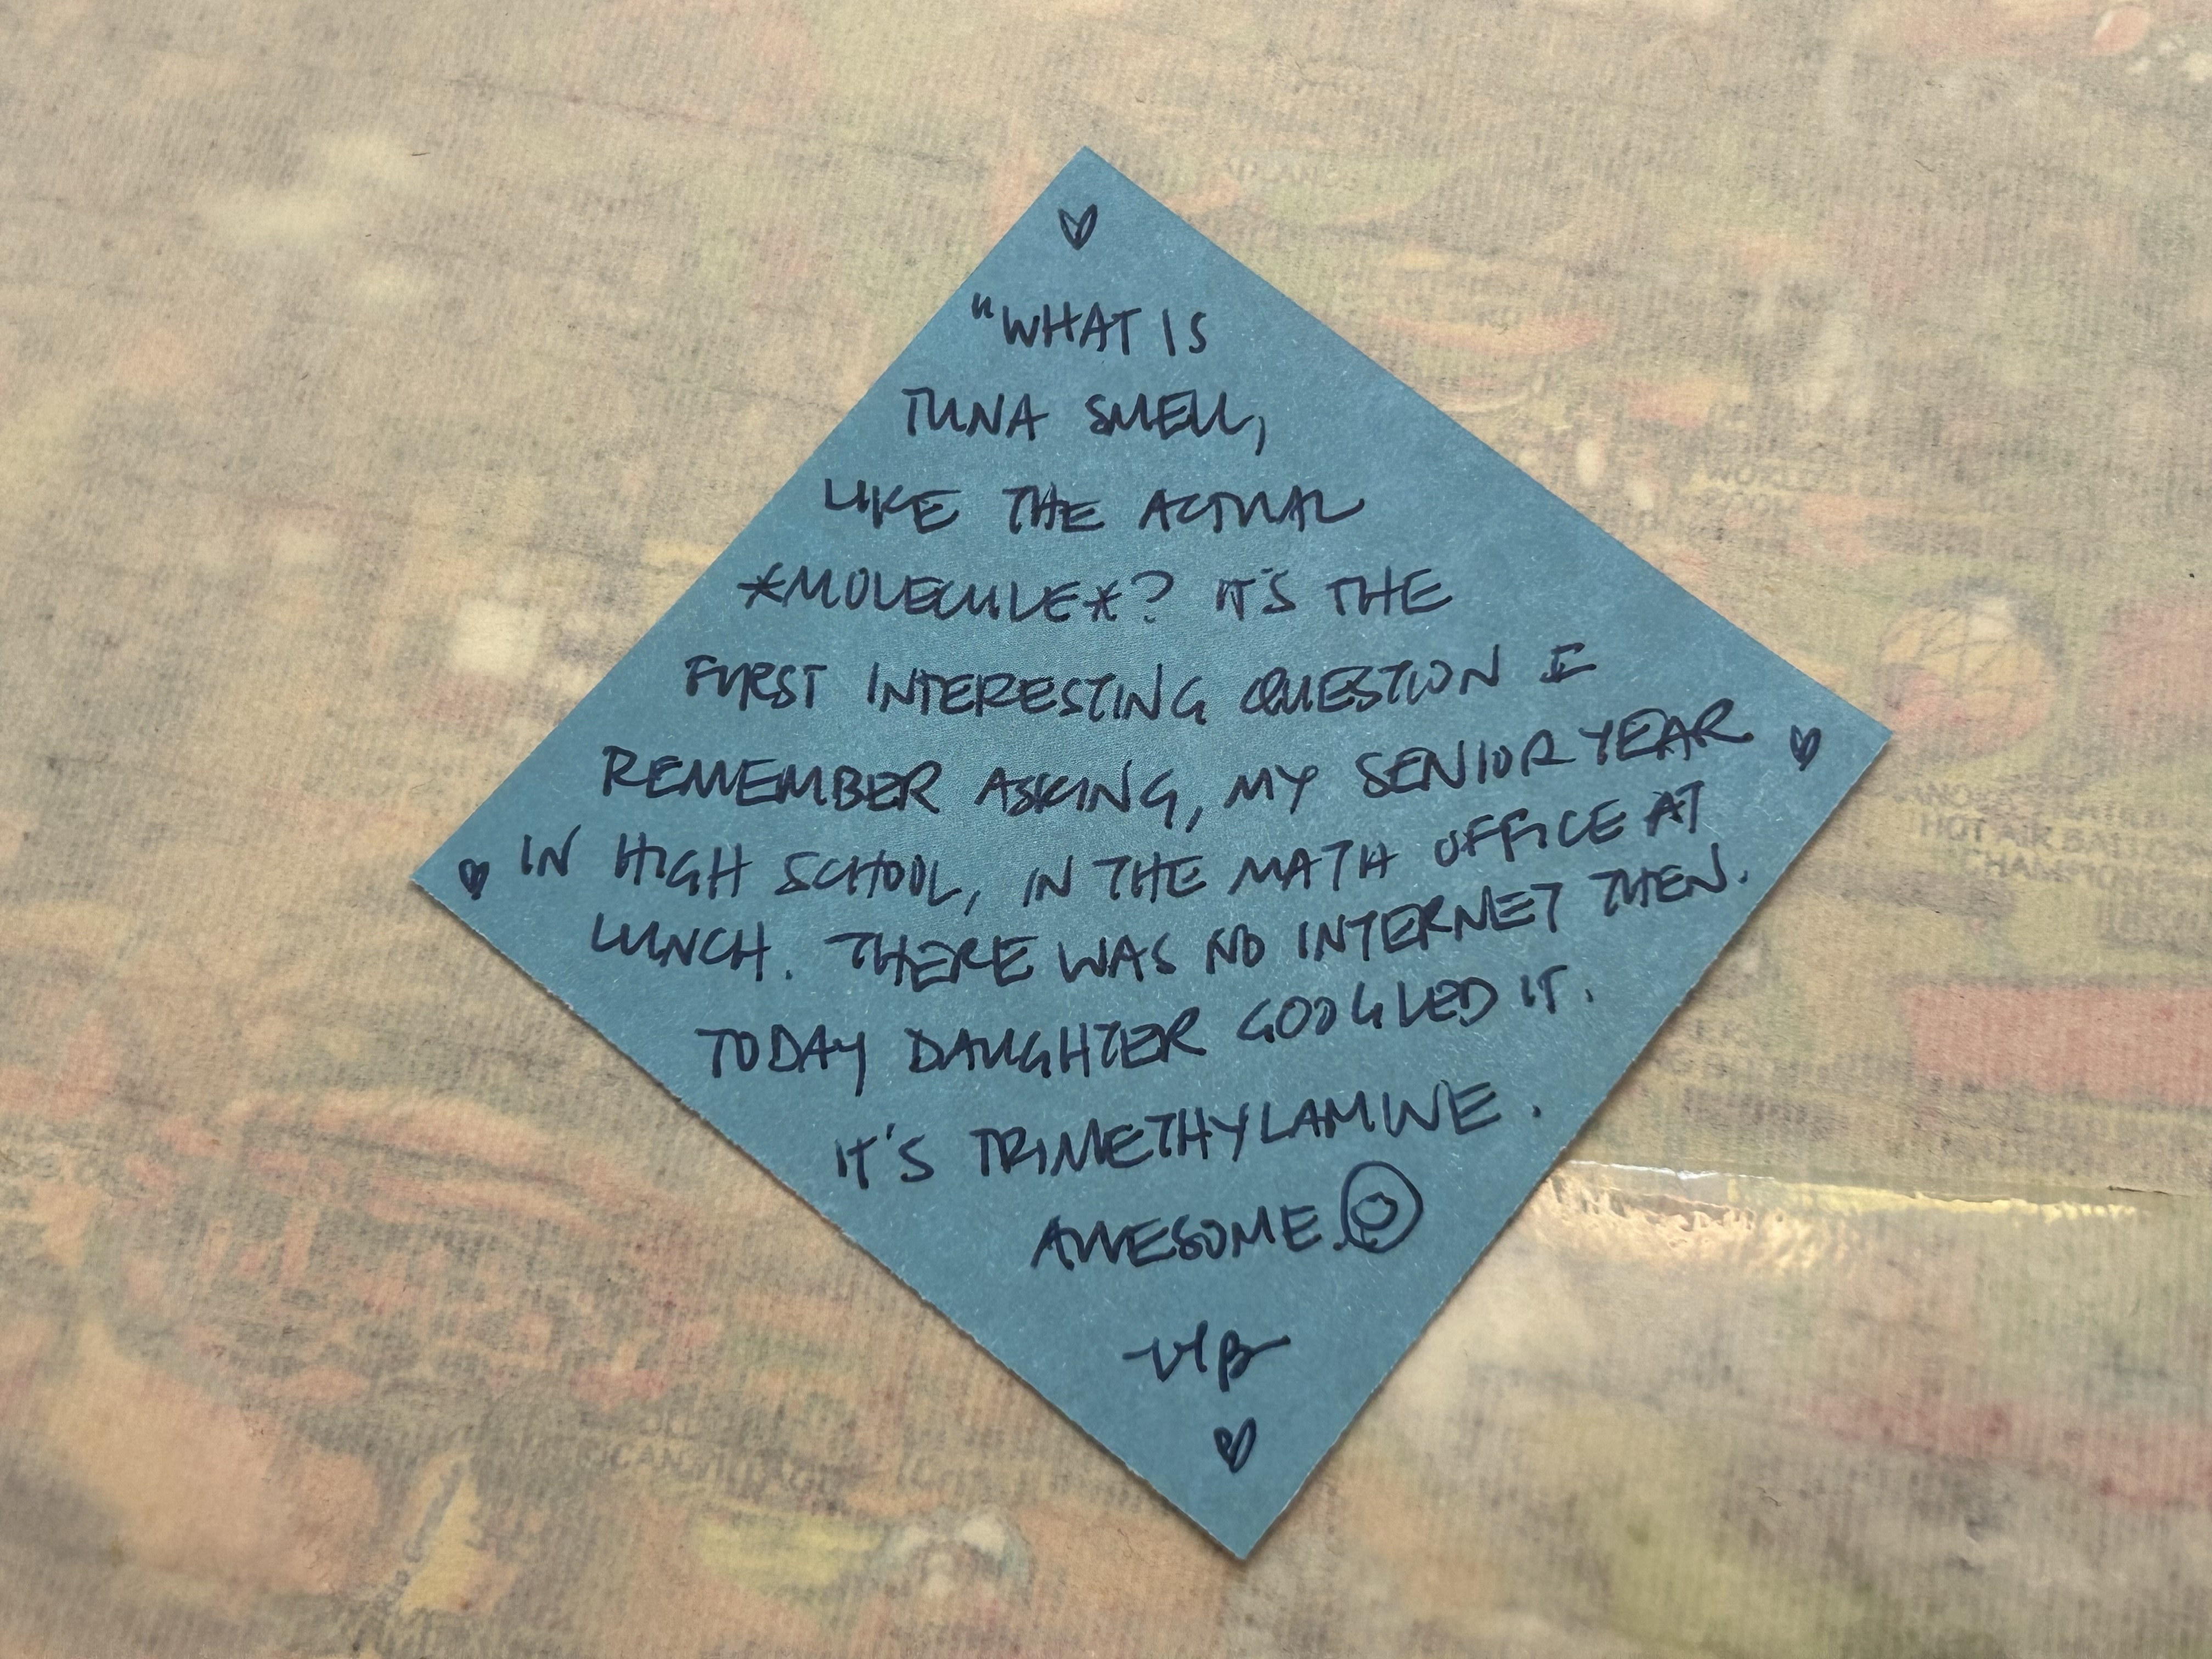 "WHAT IS
TUNA SMELL,
LIKE THE ACTUAL
*MOLECULE*? IT'S THE
FIRST INTERESTING QUESTION I
REMEMBER ASKING, MY SENIOR YEAR
IN HIGH SCHOOL, IN THE MATH OFFICE AT
LUNCH. THERE WAS NO INTERNET THEN.
TODAY DAUGHTER GOOGLED IT.
IT'S TRIMETHYLAMINE.
AWESOME.
HOT AIR